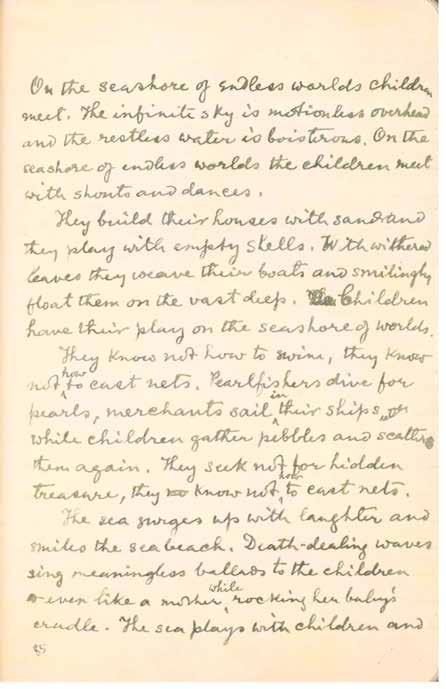 On the seashore of endless worlds children
meet. The infinite sky is motionless overhead
and the restless water is boisterous. On the
seashore of endless worlds the children meet
with shouts and dances.
They build their houses with sand and
they play with empty shells. With withered
leaves they weave their boats and smilingly
float them on the vast deep. Children
have their play on the seashore of worlds.
They know not how to swim, they know
not how to cast nets. Pearlfishers dive for
pearls, merchants sail in their ships,
while children gather pebbles and scatter
them again. They seek not for hidden
treasure, they know not how to cast nets.
The sea surges up with laughter and
smiles the sea beach. Death-dealing waves
sing meaningless ballads to the children
even like a mother, while rocking her baby's
cradle. The sea plays with children and
85